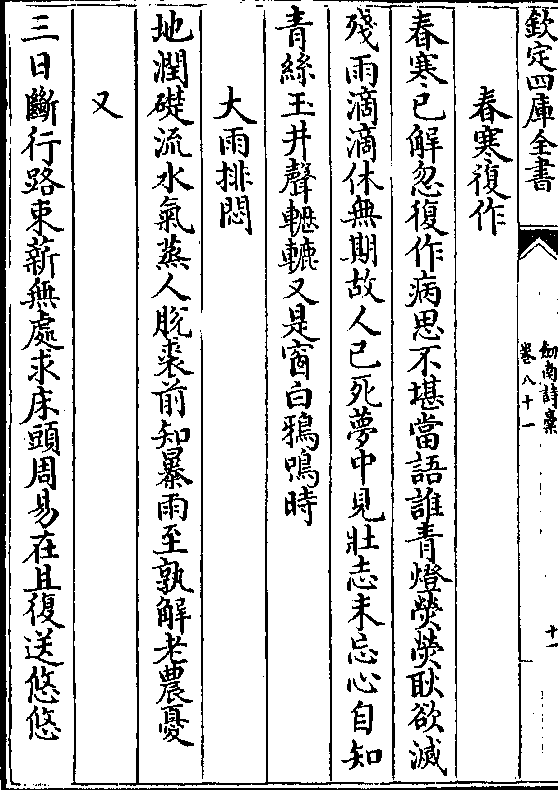 欽定四庫全書
劔南詩稾
卷八十一
十一
春寒復作
春寒已解忽復作病思不堪當語誰青燈熒熒耿欲滅
殘雨滴滴休無期故人已死夢中見壯志未忘心自知
青絲玉井聲轣轆又是窗白鴉鳴時
大雨排悶
地潤礎流水氣蒸人脫裘前知暴雨至孰解老農憂
又
三日斷行路束薪無處求床頭周易在且復送悠悠